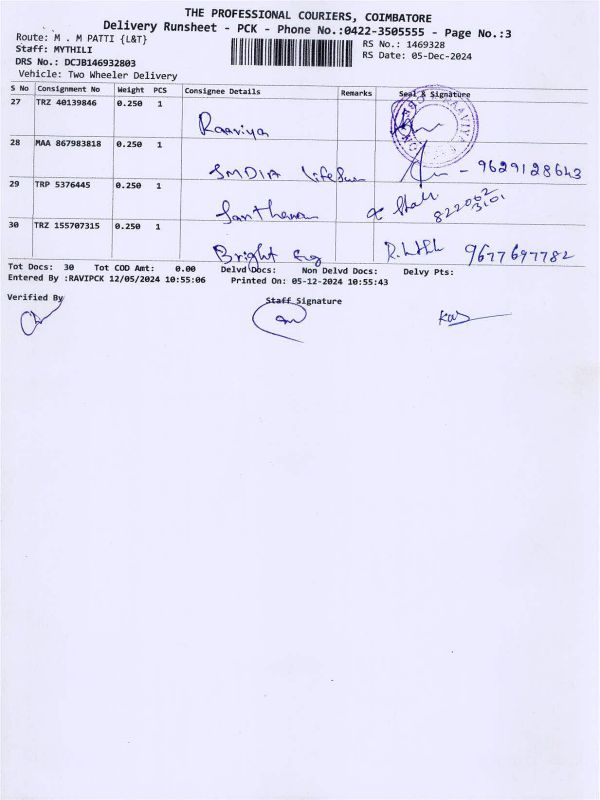 THE PROFESSIONAL COURIERS, COIMBATORE
Delivery Runsheet - PCK - Phone No.:0422-3505555 - Page No.:3
Route: M . M PATTI {L&T}
RS No.: 1469328
Staff: MYTHILI
RS Date: 05-Dec-2024
DRS No.: DCJB146932803
Vehicle: Two Wheeler Delivery
S No Consignment No Weight PCS Consignee Details Remarks Seal & Signature
27 TRZ 40139846 0.250 1
Raaviya
28 MAA 867983818 0.250 1
SMDIA - 9629128643
29 TRP 5376445 0.250 1
30 TRZ 155707315 0.250 1
Bright 9677697782
Tot Docs: 30 Tot COD Amt: 0.00 Delvd Docs: Non Delvd Docs: Delvy Pts:
Entered By :RAVIPCK 12/05/2024 10:55:06 Printed On: 05-12-2024 10:55:43
Verified By Staff Signature